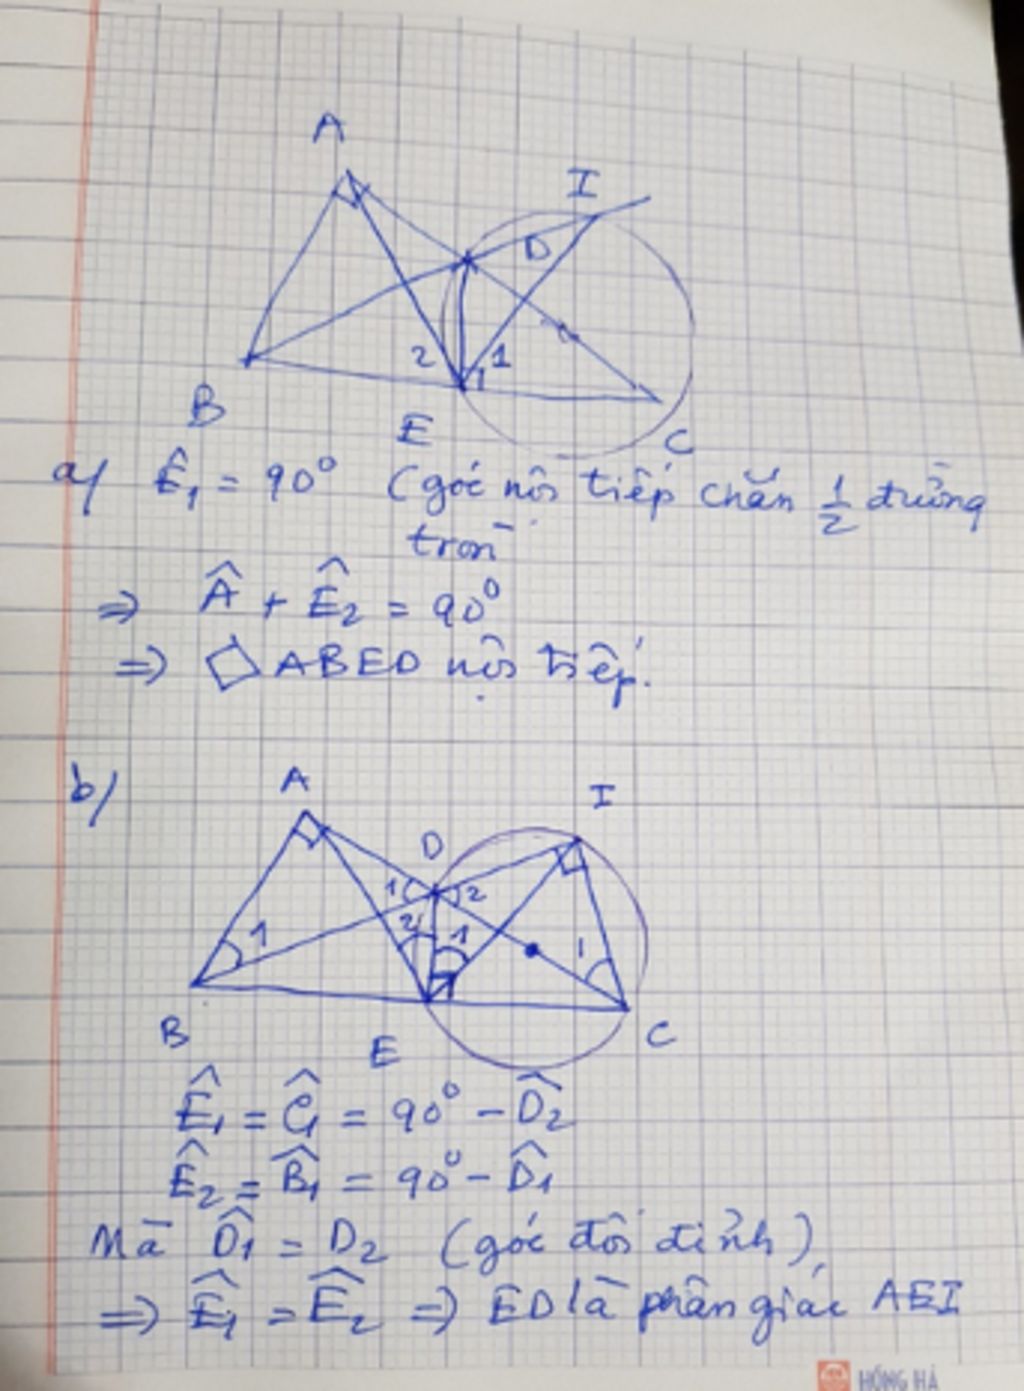 A
I
D
2
1
1
B
E
C
a/ Ê₁ = 90° (góc nội tiếp chắn 1/2 đường
tròn
=> Â + Ê₂ = 90°
=> ◇ABED nội tiếp.
b/
A
I
D
1
2
1
2
1
1
B
E
C
Ê₁ = Ĉ₁ = 90° - D̂₂
Ê₂ = B̂₁ = 90° - D̂₁
Mà D̂₁ = D₂ (góc đối đỉnh)
=> Ê₁ = Ê₂ => ED là phân giác AEI
HỒNG HÀ